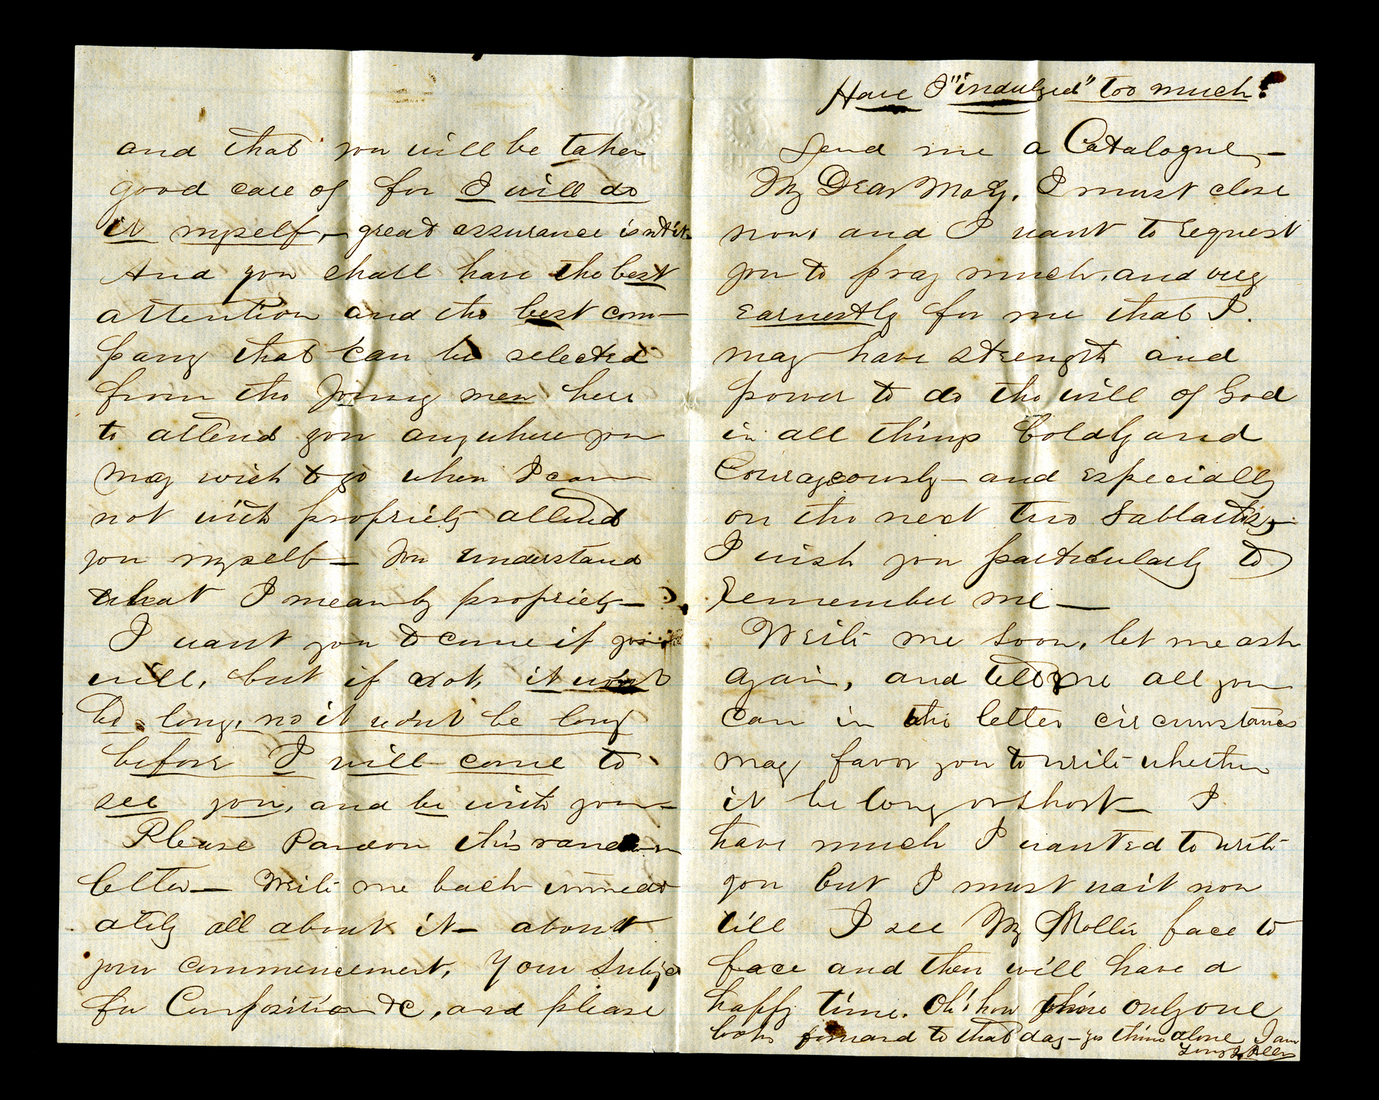 and that you will be taken
good care of for I will do
it myself,— great assurance isn't it
And you shall have the best
attention and the best com-
pany that can be selected
from the young men here
to attend you anywhere you
may wish to go when I can
not with propriety attend
you myself— You understand
what I mean by propriety—
I want you to come if you
will, but if not, it wont
be long, no it wont be long
before I will come to
see you, and be with you—
Please Pardon this random
letter— Write me back immedi
ately all about it— about
your commencement, Your Subject
for Composition &c, and please
Have I "indulged" too much?
Send me a Catalogue—
My Dear Molly, I must close
now and I want to request
you to pray much, and very
earnestly for me that I
may have strength and
power to do the will of God
in all things boldly and
Courageously— and especially
on the next two Sabbaths,—
I wish you particularly to
remember me—
Write me soon, let me ask
again, and tell me all you
can in the letter circumstances
may favor you to write whether
it be long or short— I
have much I wanted to write
you but I must wait now
till I see My Mollie face to
face and then will have a
happy time. Oh! how thine only one
looks forward to that day— yes thine alone I am